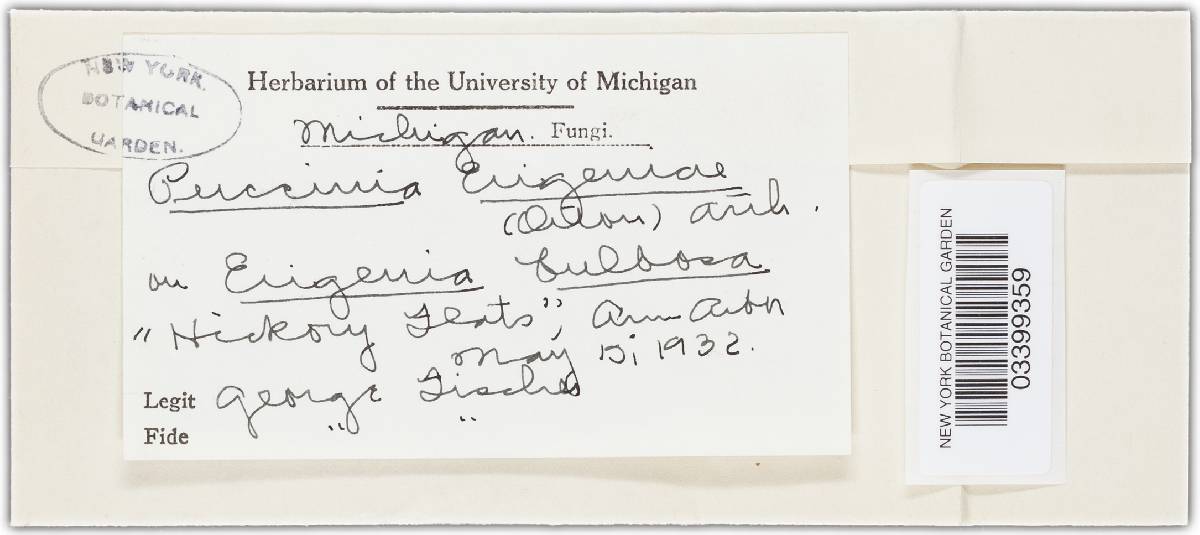 NEW YORK
BOTANICAL
GARDEN.
Herbarium of the University of Michigan
Michigan. Fungi.
Puccinia Erigeniae
(Orton) Arth.
on Erigenia bulbosa
"Hickory Flats", Ann Arbor
May 15, 1932.
Legit George Fischer
Fide " "
NEW YORK BOTANICAL GARDEN
03399359